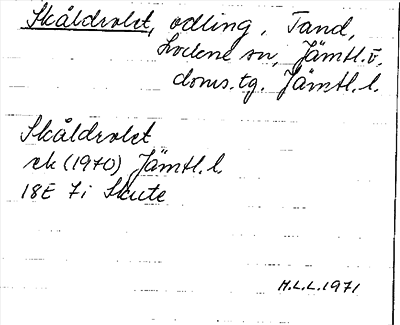 Skåldrolet, odling, Tand,
Lockne sn, Jämtl. v.
doms. tg. Jämtl. l.
Skåldrolet
ek (1970) Jämtl. l.
18E 7i Skute
M.L.L. 1971